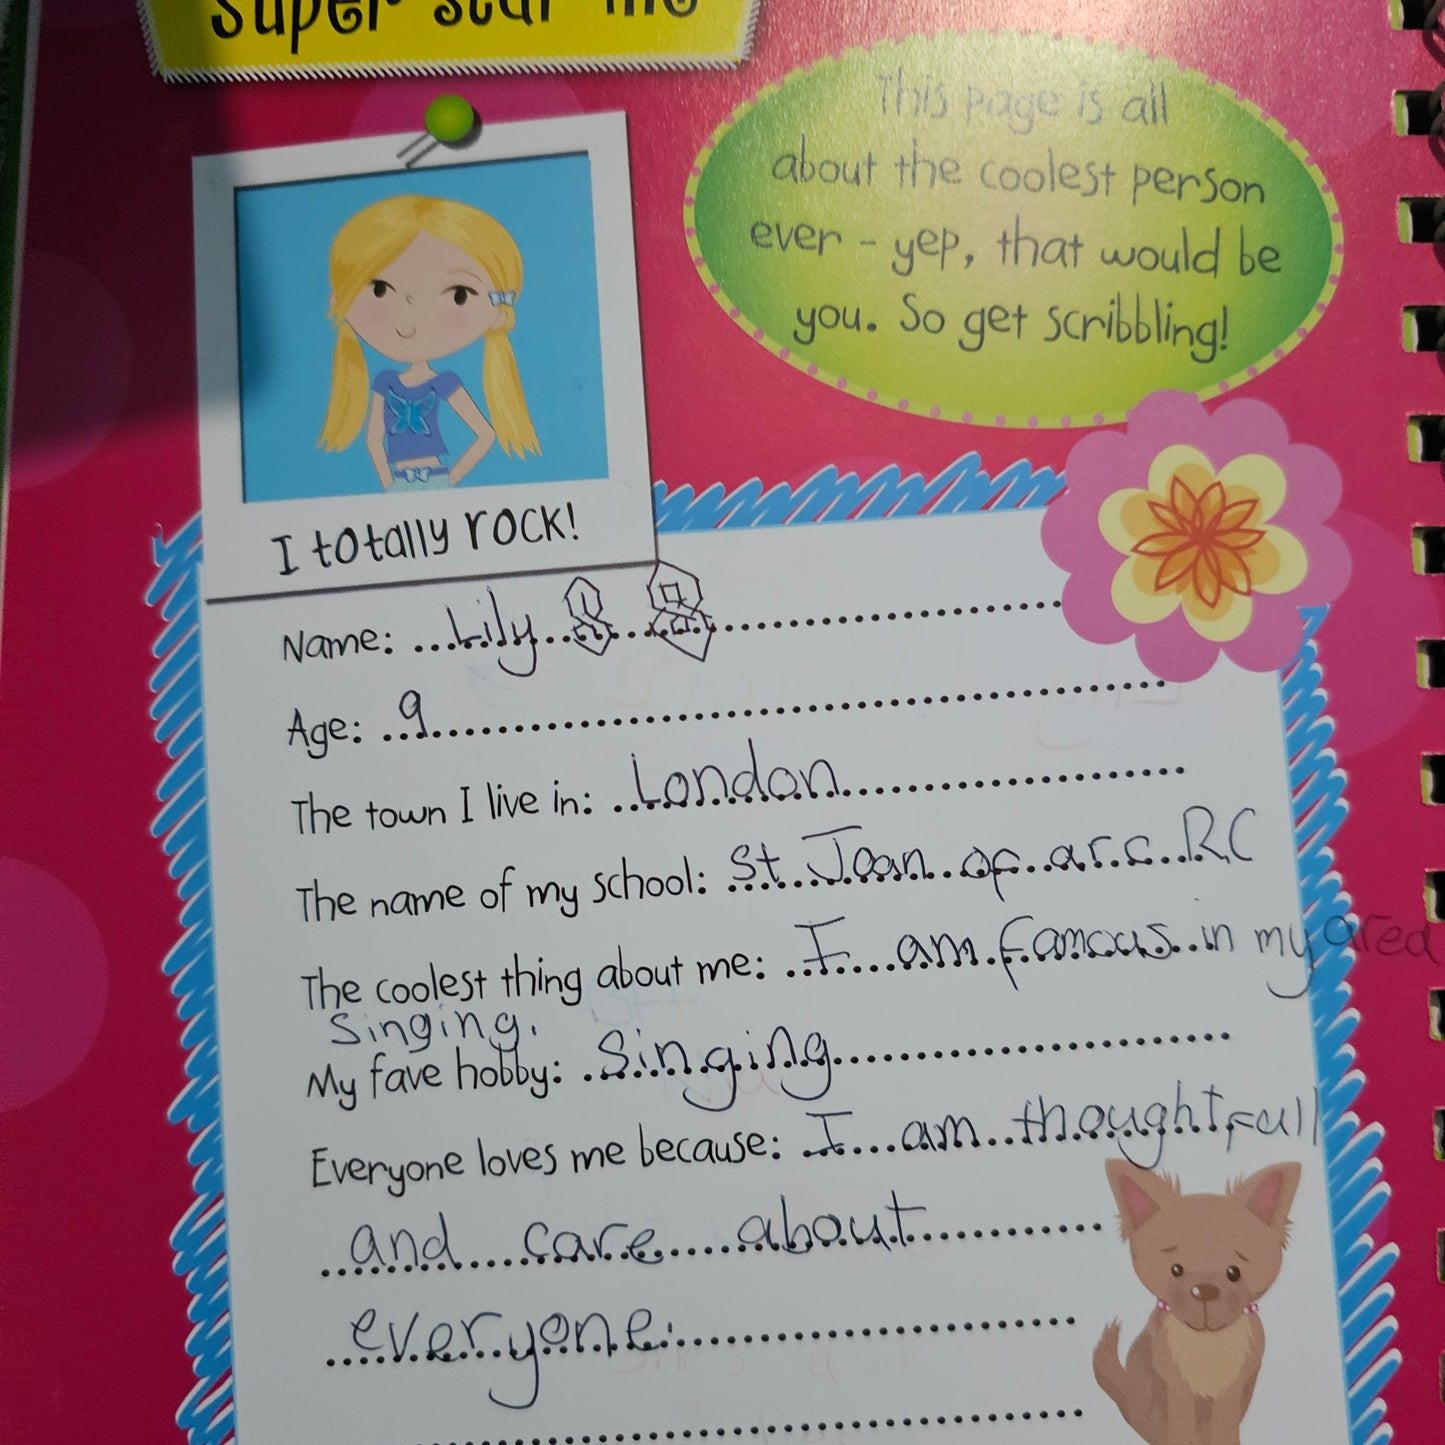 Super star me
This page is all
about the coolest person
ever - yep, that would be
you. So get scribbling!
I totally rock!
Name: Lily
Age: 9
The town I live in: London
The name of my school: St Joan of arc RC
The coolest thing about me: I am famous in my area
singing.
My fave hobby: singing
Everyone loves me because: I am thoughtfull
and care about
everyone.